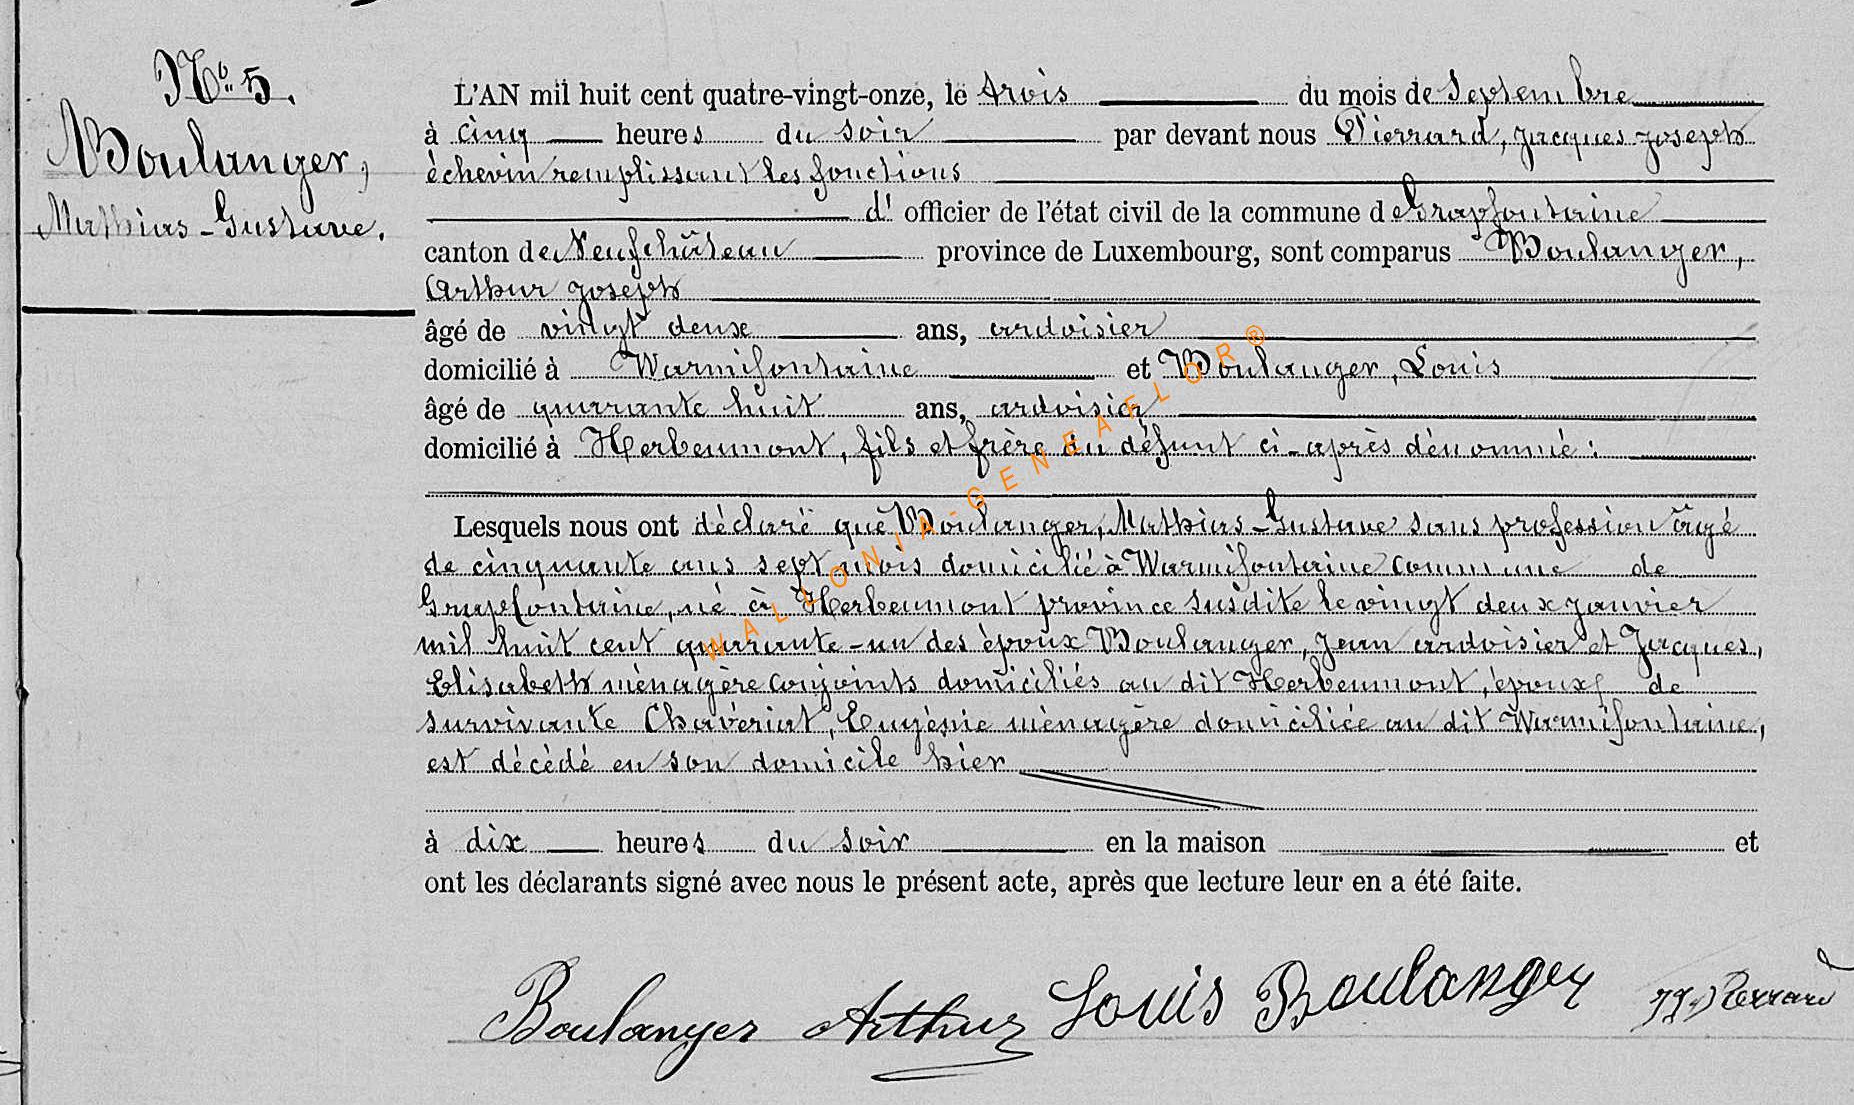 No. 5.
Boulanger,
Mathias-Gustave.
L'AN mil huit cent quatre-vingt-onze, le trois du mois de Septembre
à cinq heures du soir par devant nous Pierrard, Jacques Joseph
échevin remplissant les fonctions
d' officier de l'état civil de la commune de Grapfontaine
canton de Neufchâteau province de Luxembourg, sont comparus Boulanger,
Arthur Joseph
âgé de vingt deux ans, ardoisier
domicilié à Warmifontaine et Boulanger, Louis
âgé de quarante huit ans, ardoisier
domicilié à Herbeumont, fils et frère du défunt ci-après dénommé :
Lesquels nous ont déclaré que Boulanger, Mathias-Gustave sans profession âgé
de cinquante ans sept mois domicilié à Warmifontaine commune de
Grapfontaine, né à Herbeumont province susdite le vingt deux janvier
mil huit cent quarante-un des époux Boulanger, Jean ardoisier et Jacques,
Elisabeth ménagère conjoints domiciliés au dit Herbeumont, époux de
survivante Chavériat, Eugénie ménagère domiciliée au dit Warmifontaine,
est décédé en son domicile hier
à dix heures du soir en la maison et
ont les déclarants signé avec nous le présent acte, après que lecture leur en a été faite.
Boulanger Arthur Louis Boulanger JJ Pierrard
WALLONIA-GENEAFLOR®